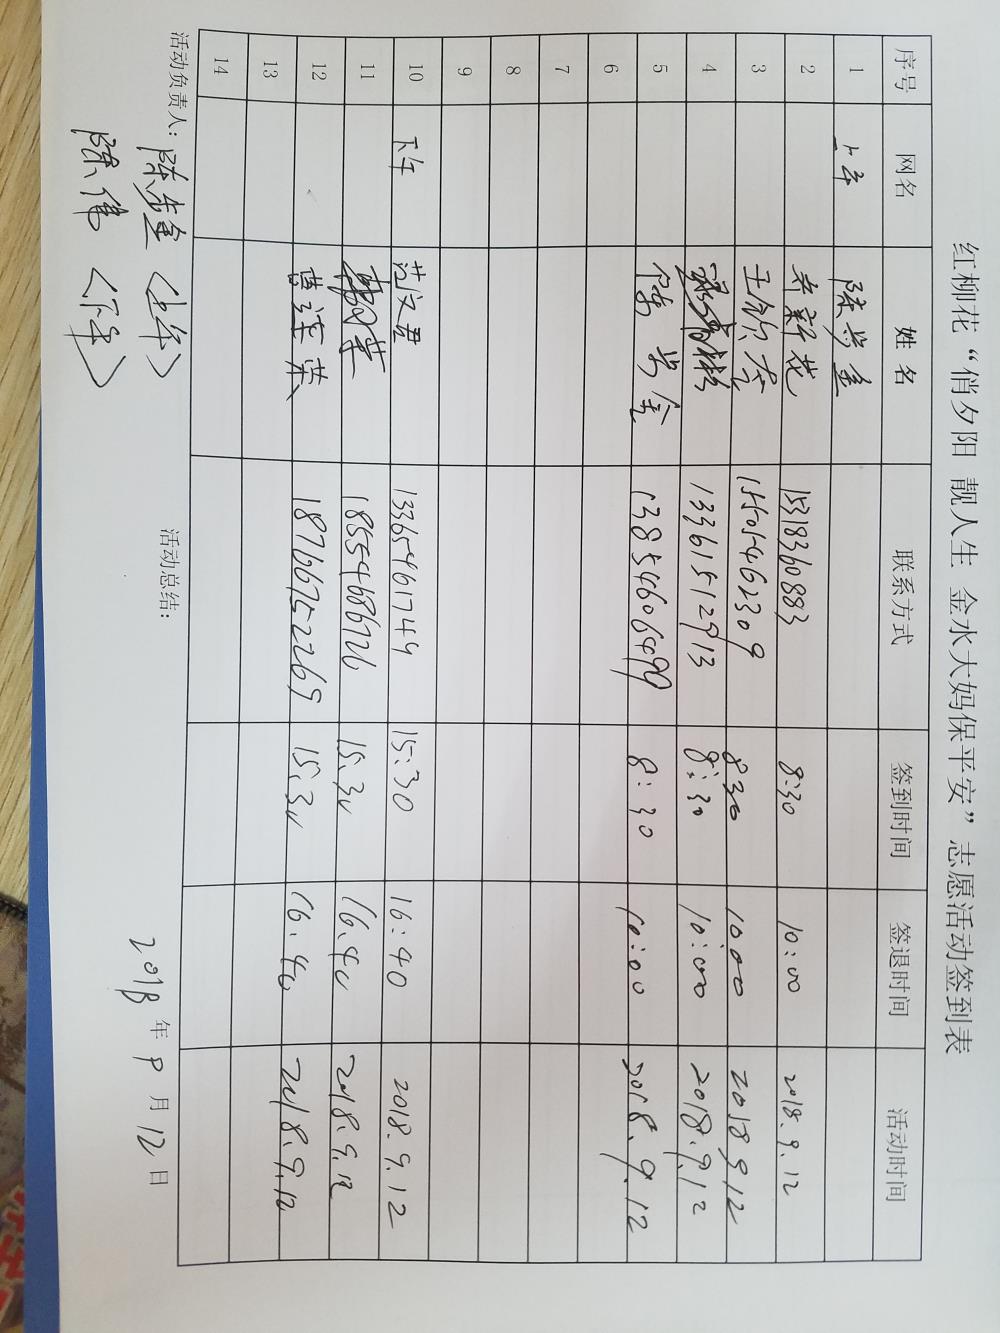 红柳花“俏夕阳 靓人生 金水大妈保平安”志愿活动签到表
序号 网名 姓名 联系方式 签到时间 签退时间 活动时间
1 上午
2 15318360883 8:30 10:00 2018.9.12
3 15505462309 830 1000 2018 9 12
4 13361512913 8:30 10:00 2018.9.12
5 13854606499 8:30 10:00 2018.9.12
6
7
8
9
10 下午 范文君 13365461749 15:30 16:40 2018.9.12
11 18554686726 15:30 16:40 2018.9.12
12 曹连荣 18766752269 15:30 16:40 2018.9.12
13
14
活动负责人: 活动总结: 2018年9月12日
陈伟〈下午〉